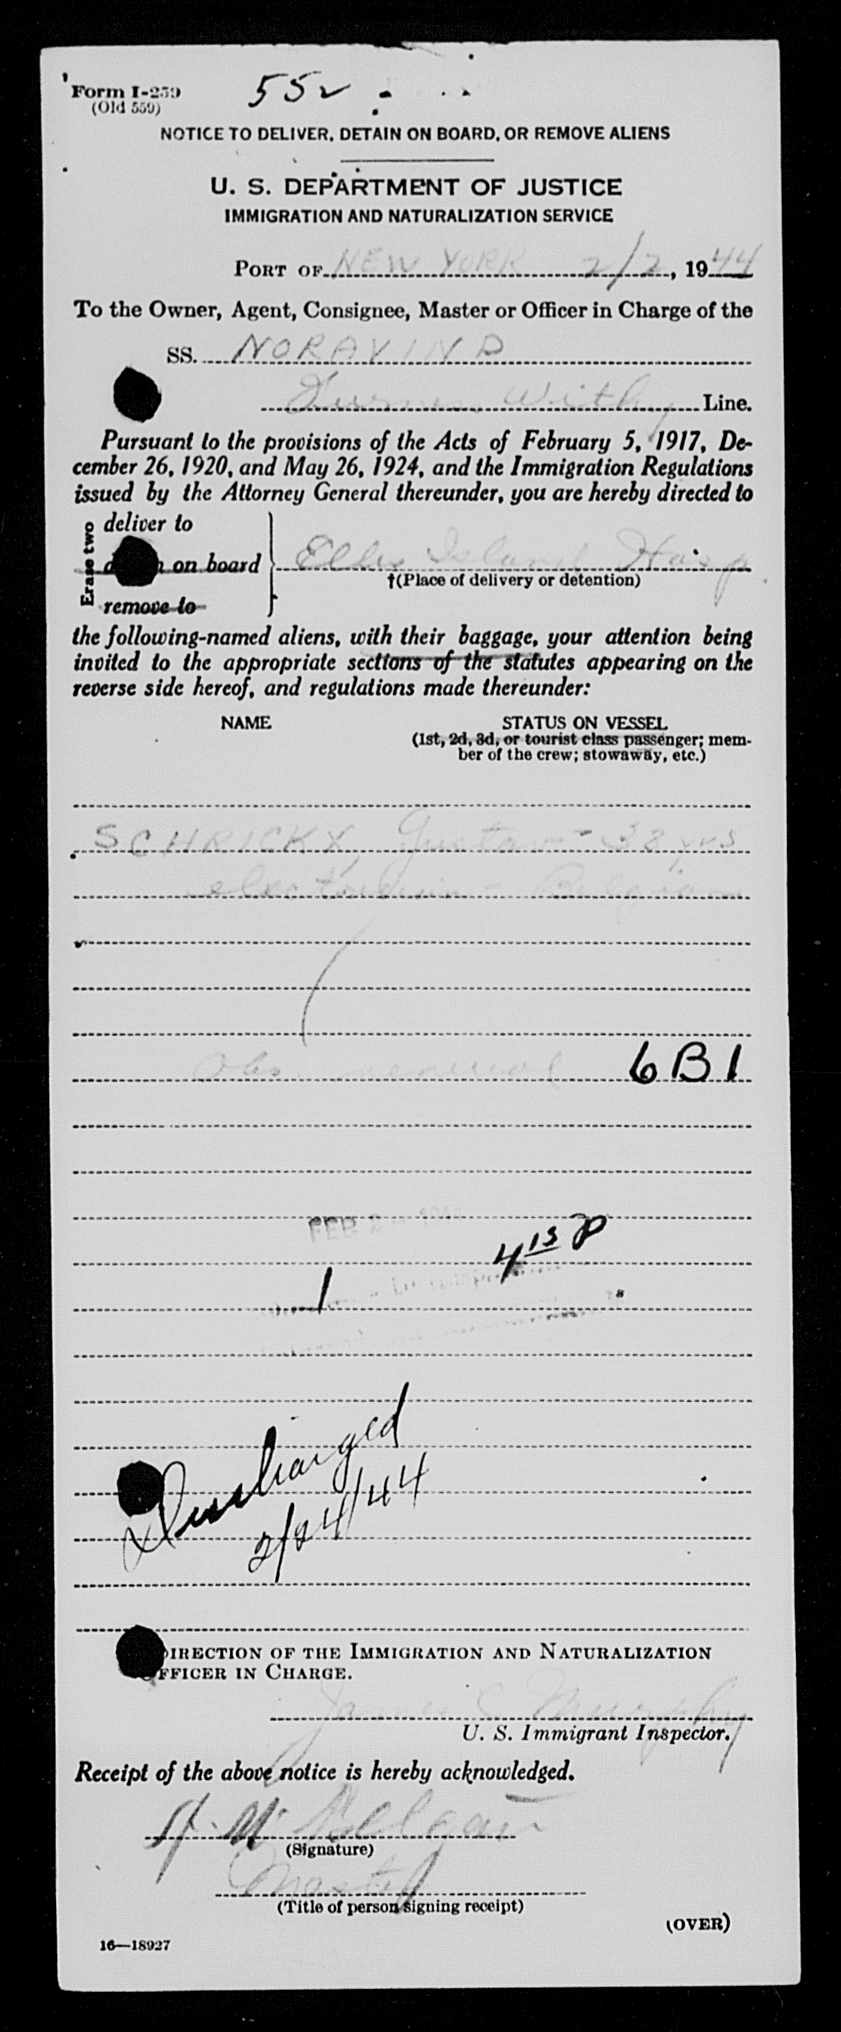 Form I-259
(Old 559)
552
NOTICE TO DELIVER, DETAIN ON BOARD, OR REMOVE ALIENS
U. S. DEPARTMENT OF JUSTICE
IMMIGRATION AND NATURALIZATION SERVICE
PORT OF NEW YORK 2/2, 1944
To the Owner, Agent, Consignee, Master or Officer in Charge of the
SS. NORAVIND
Line.
Pursuant to the provisions of the Acts of February 5, 1917, De-
cember 26, 1920, and May 26, 1924, and the Immigration Regulations
issued by the Attorney General thereunder, you are hereby directed to
Erase two
deliver to
on board
remove to
Ellis Island Hosp.
†(Place of delivery or detention)
the following-named aliens, with their baggage, your attention being
invited to the appropriate sections of the statutes appearing on the
reverse side hereof, and regulations made thereunder:
NAME
STATUS ON VESSEL
(1st, 2d, 3d, or tourist class passenger; mem-
ber of the crew; stowaway, etc.)
SCHRICKX, Gustav - 38 yrs
Belgian
6B1
FEB 2
4 15 P
1
Discharged
2/24/44
DIRECTION OF THE IMMIGRATION AND NATURALIZATION
OFFICER IN CHARGE.
James C. Murphy
U. S. Immigrant Inspector.
Receipt of the above notice is hereby acknowledged.
(Signature)
Master
(Title of person signing receipt)
(OVER)
16—18927